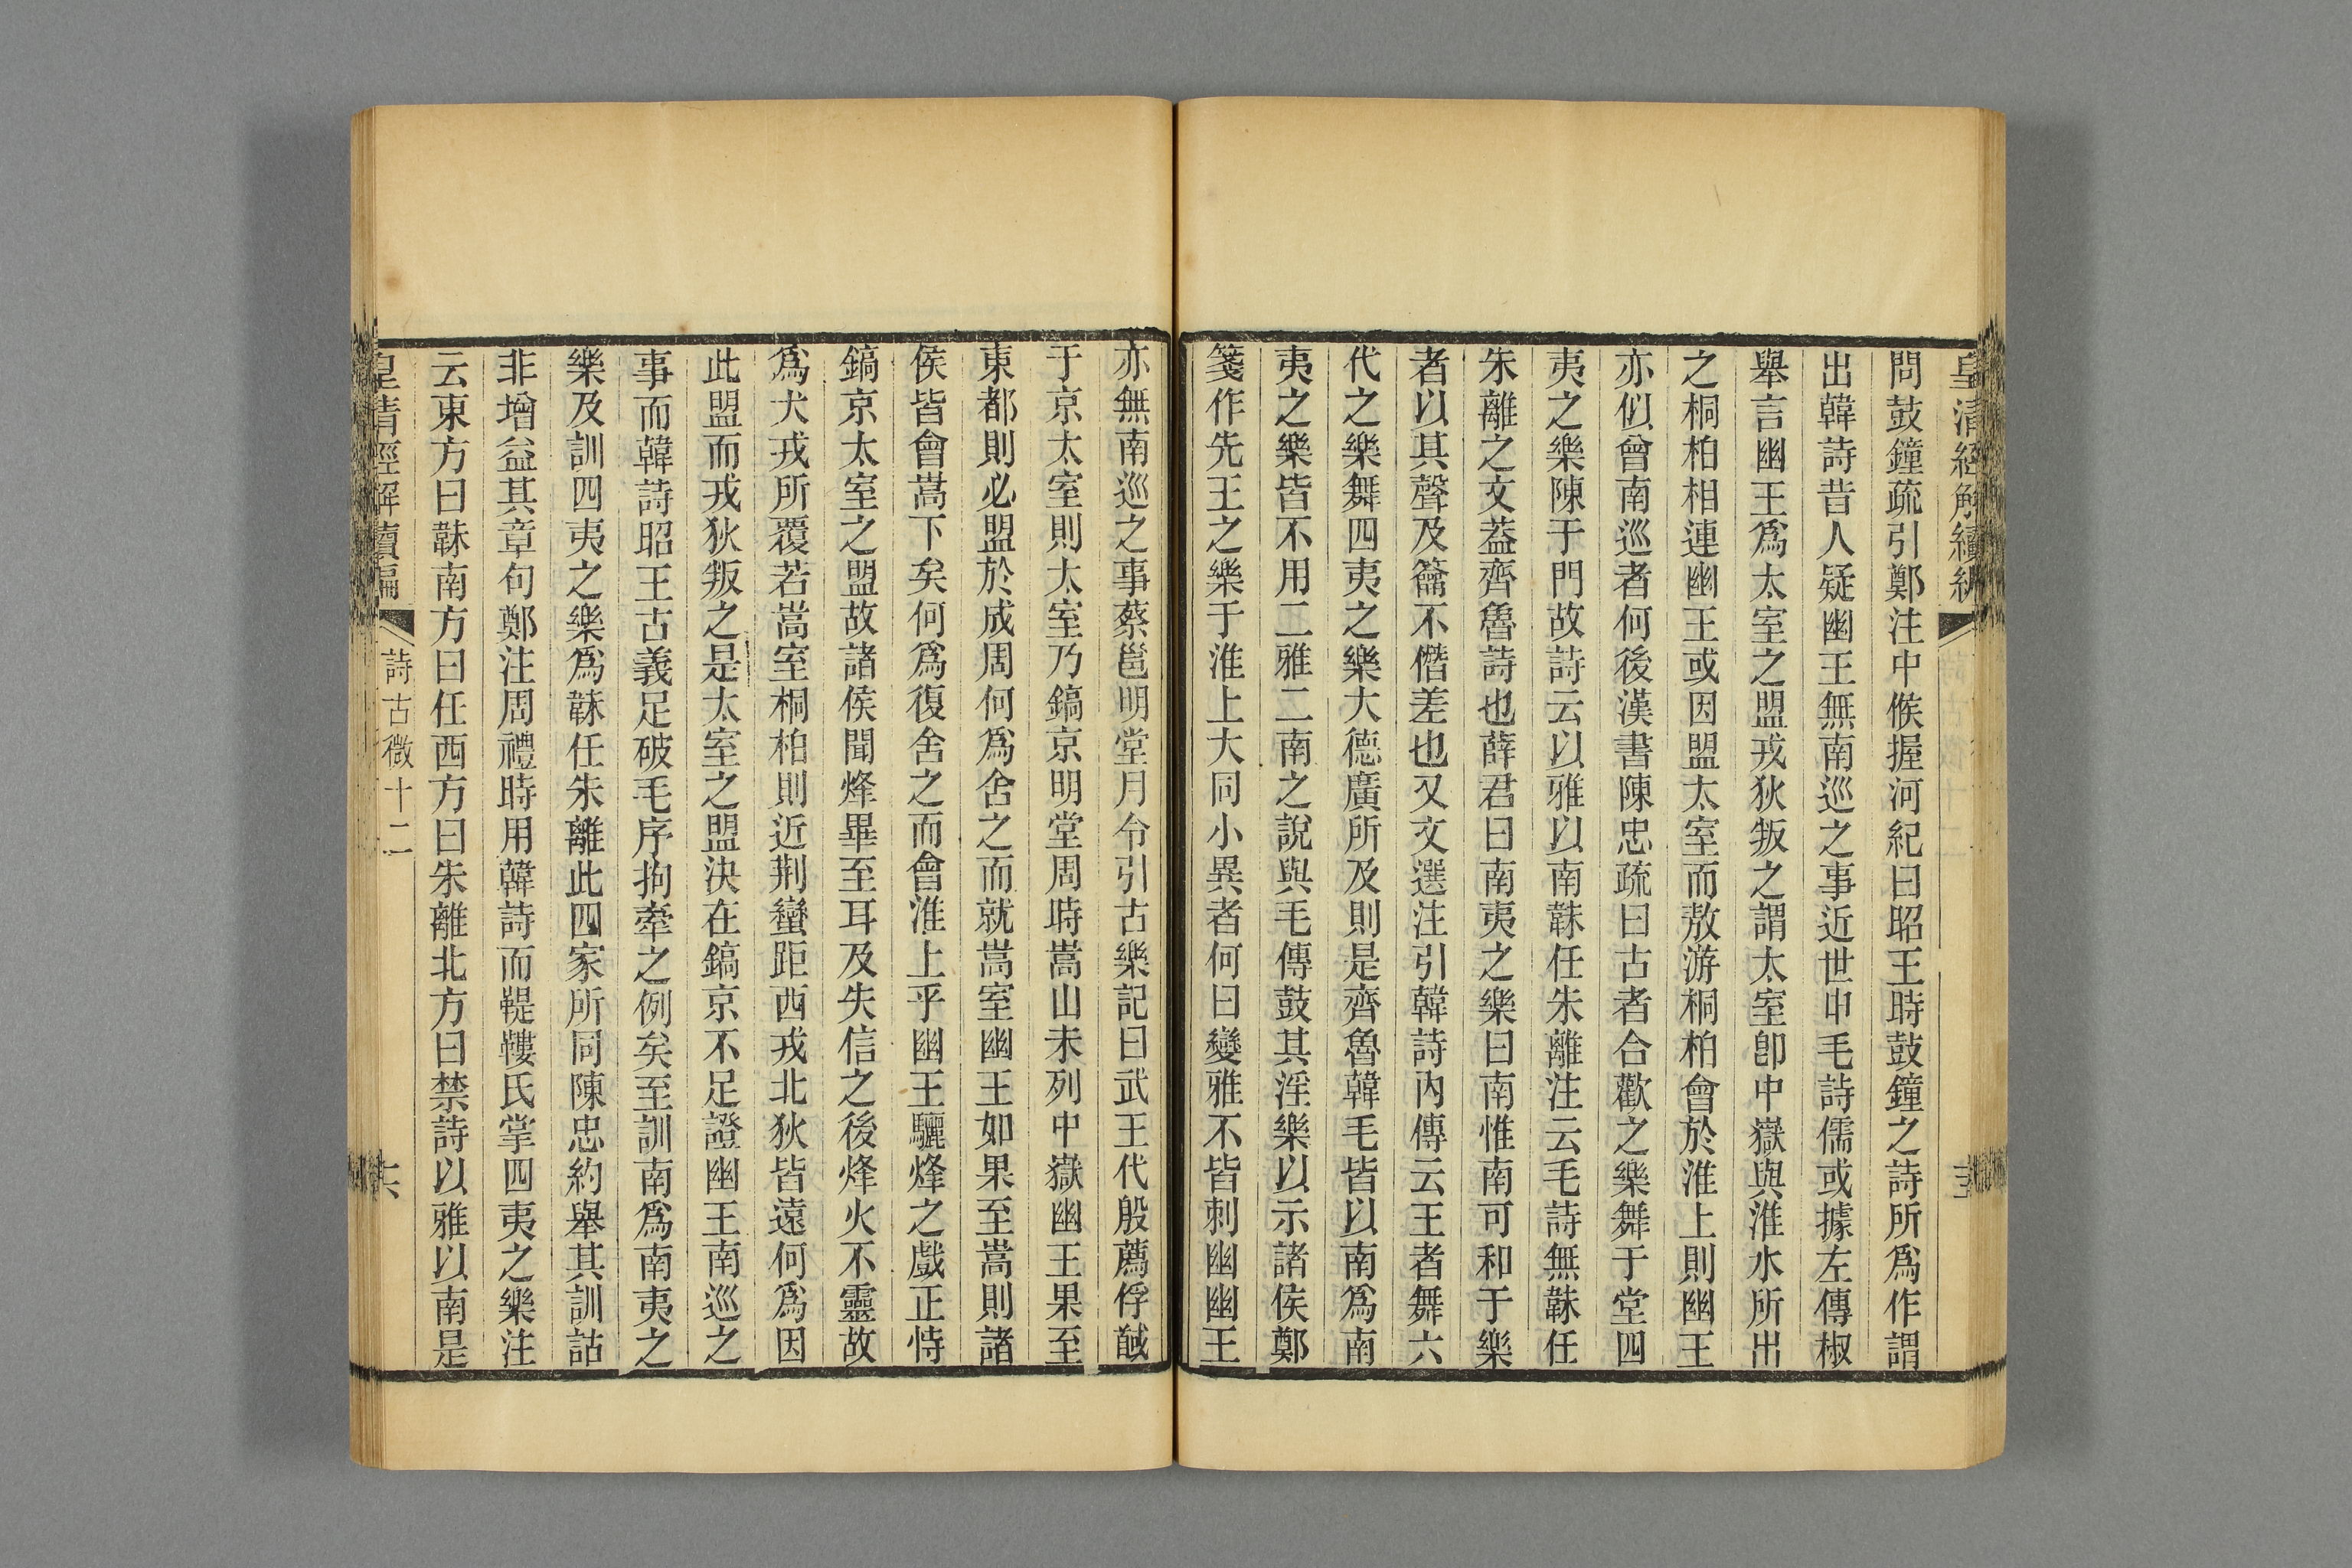 皇清經解續編
問鼓鐘疏引鄭注中候握河紀曰昭王時鼓鐘之詩所爲作謂
出韓詩昔人疑幽王無南巡之事近世申毛詩儒或據左傳椒
舉言幽王爲太室之盟戎狄叛之謂太室卽中嶽與淮水所出
之桐柏相連幽王或因盟太室而敖游桐柏會於淮上則幽王
亦似曾南巡者何後漢書陳忠疏曰古者合歡之樂舞于堂四
夷之樂陳于門故詩云以雅以南韎任朱離注云毛詩無韎任
朱離之文蓋齊魯詩也薛君曰南夷之樂曰南惟南可和于樂
者以其聲及籥不僭差也又文選注引韓詩內傳云王者舞六
代之樂舞四夷之樂大德廣所及則是齊魯韓毛皆以南爲南
夷之樂皆不用二雅二南之說與毛傳鼓其淫樂以示諸侯鄭
箋作先王之樂于淮上大同小異者何曰變雅不皆刺幽幽王
亦無南巡之事蔡邕明堂月令引古樂記曰武王代殷薦俘馘
于京太室則太室乃鎬京明堂周時嵩山未列中嶽幽王果至
東都則必盟於成周何爲舍之而就嵩室幽王如果至嵩則諸
侯皆會嵩下矣何爲復舍之而會淮上乎幽王驪烽之戲正恃
鎬京太室之盟故諸侯聞烽畢至耳及失信之後烽火不靈故
爲犬戎所覆若嵩室桐柏則近荆蠻距西戎北狄皆遠何爲因
此盟而戎狄叛之是太室之盟決在鎬京不足證幽王南巡之
事而韓詩昭王古義足破毛序拘牽之例矣至訓南爲南夷之
樂及訓四夷之樂爲韎任朱離此四家所同陳忠約舉其訓詁
非增益其章句鄭注周禮時用韓詩而鞮鞻氏掌四夷之樂注
云東方曰韎南方曰任西方曰朱離北方曰禁詩以雅以南是
皇清經解續編
詩古微十二